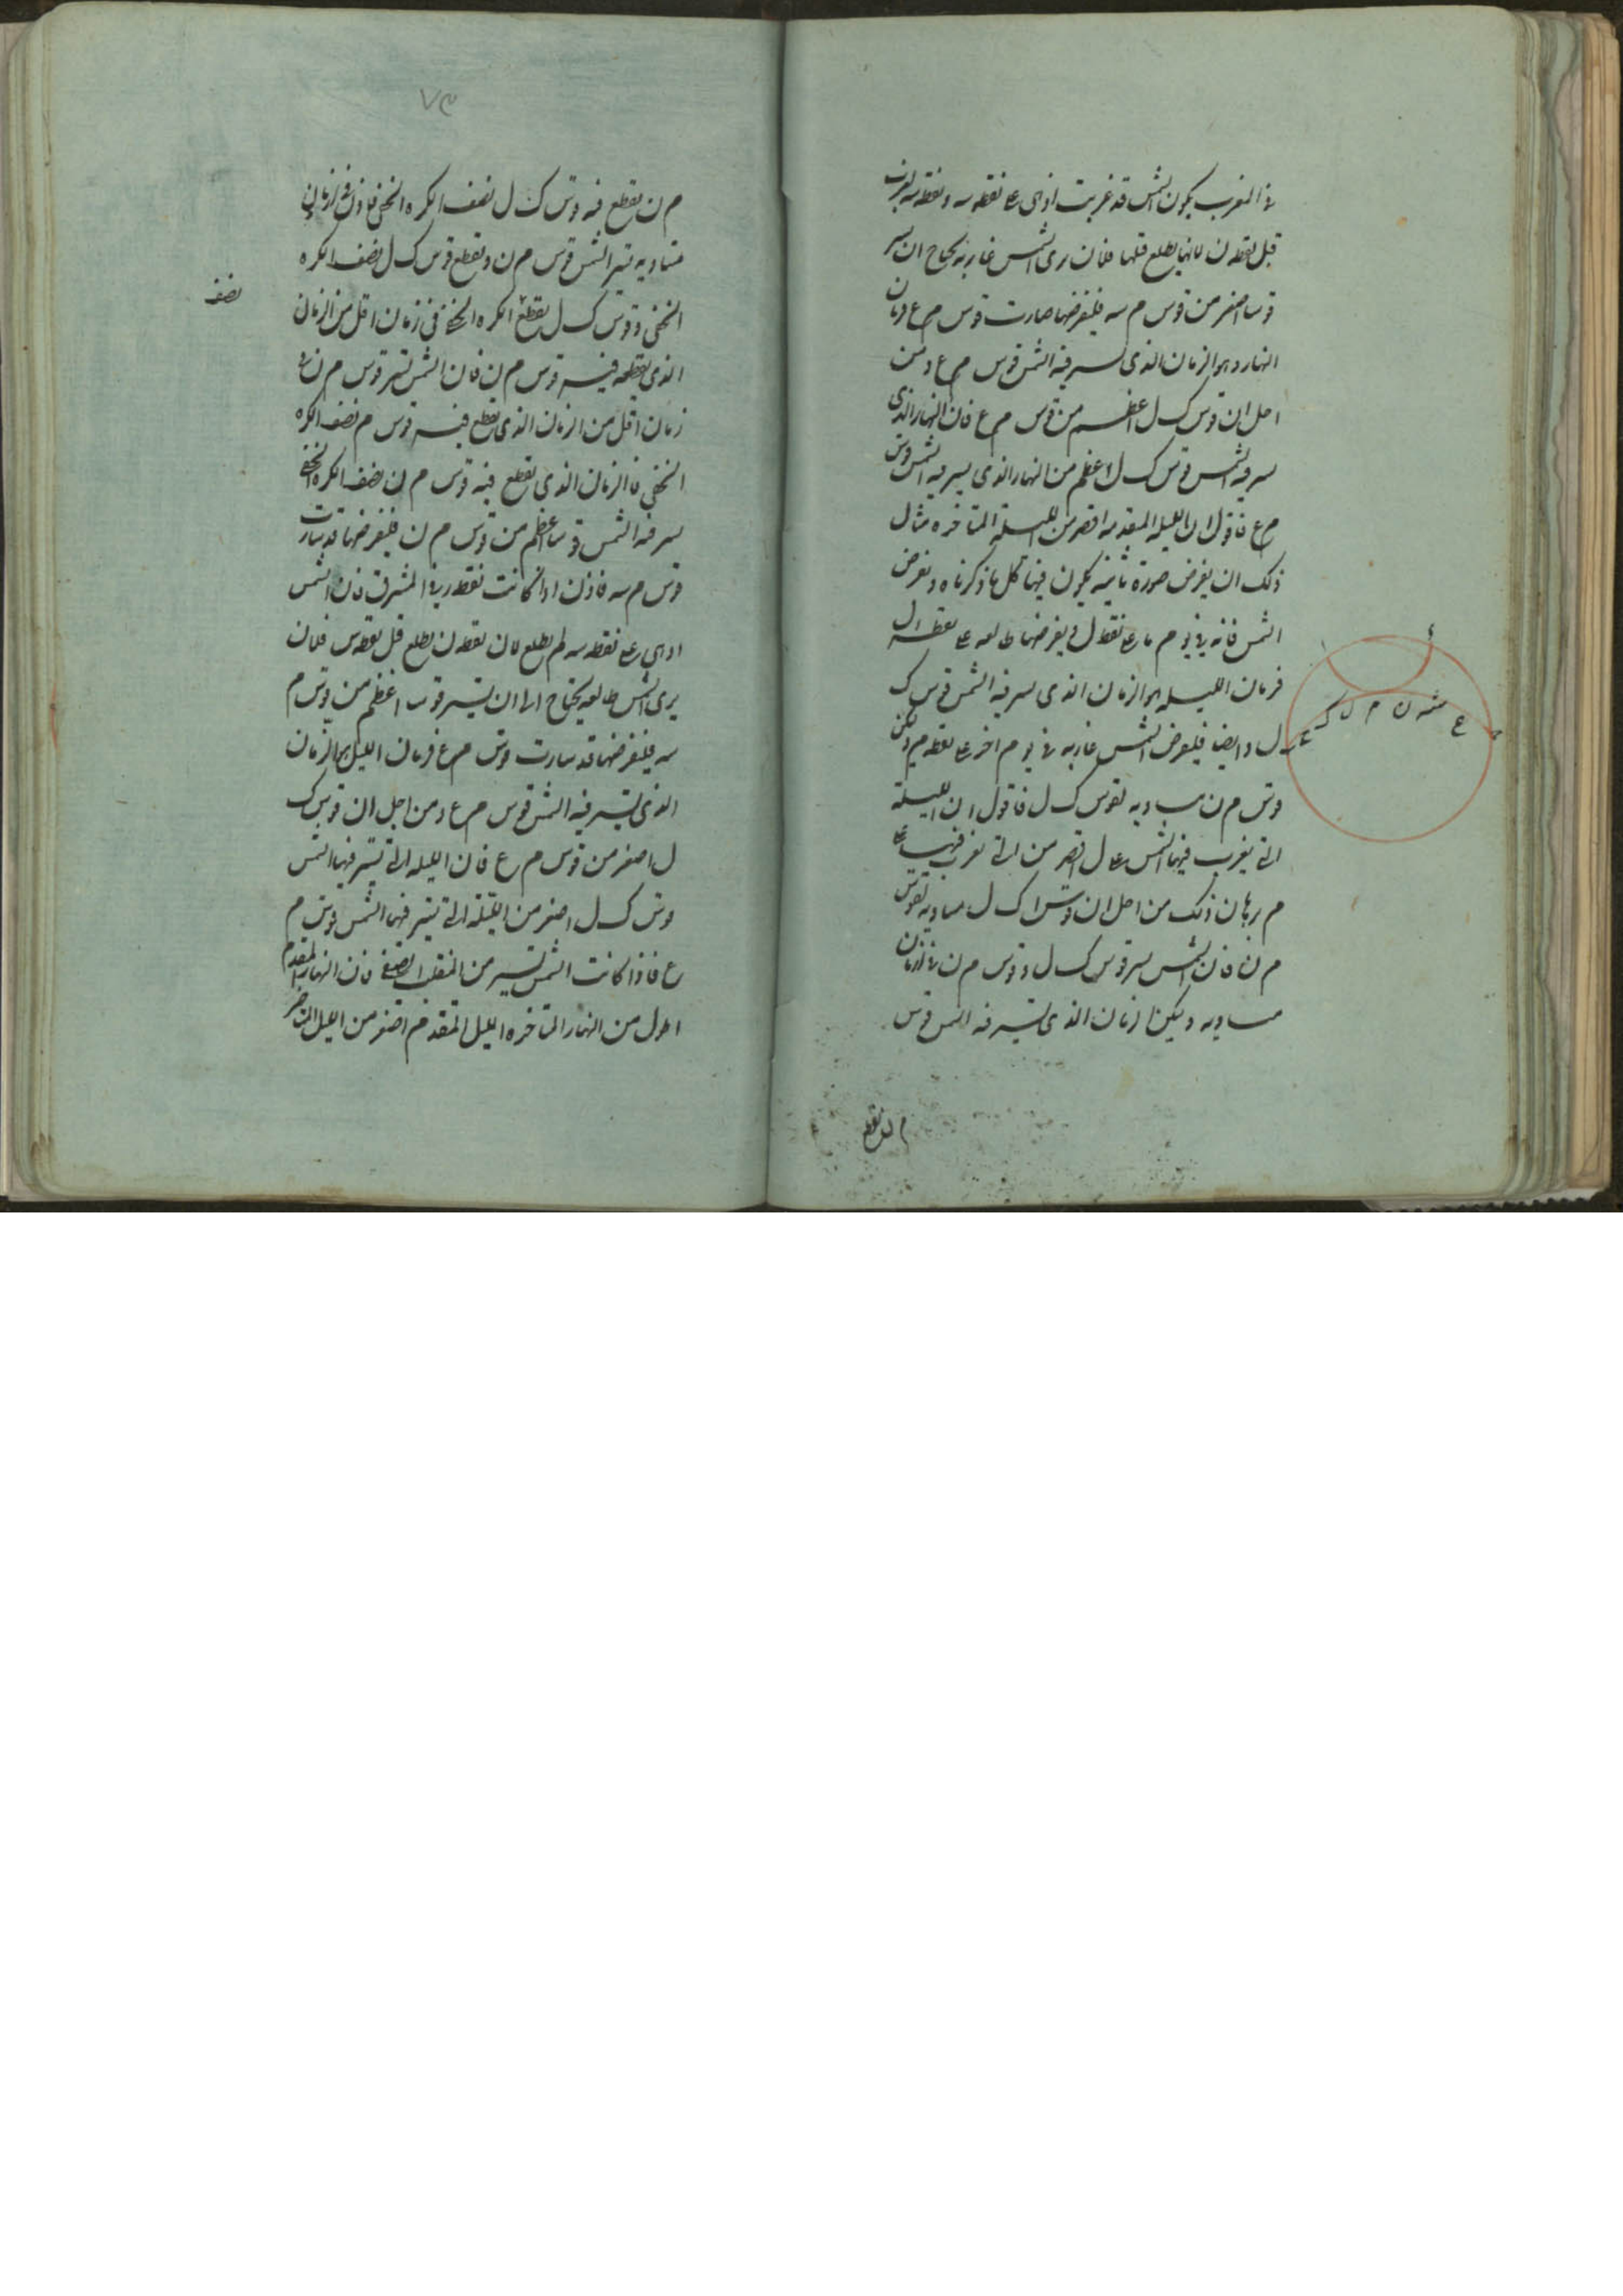 في المغرب يكون الشمس قد غربت اذ هي على نقطه سه ونقطه سه تغرب
قبل نقطه ن لانها يطلع قبلها فلان يرى الشمس غاربه يحتاج ان يسير
قوسا اصغر من قوس م سه فليفرضها صارت قوس م ع فزمان
النهار هو الزمان الذى يسير فيه الشمس قوس م ع ومن
اجل ان قوس ك ل اعظم من قوس م ع فان النهار الذى
يسير فيه الشمس قوس ك ل اعظم من النهار الذى يسير فيه الشمس قوس
م ع فاقول ان الليله المتقدمه اقصر من الليلة المتاخره مثال
ذلك ان يفرض صورة ثانيه يكون فيها كل ما ذكرناه ويفرض
الشمس فانه في يوم ما على نقطه ل ويفرضها طالعه على نقطه ل
فزمان الليله هو الزمان الذى يسير فيه الشمس قوس ك
ل وايضا فليفرض الشمس غاربه في يوم اخر على نقطه م وليكن
قوس م ن مساويه لقوس ك ل فاقول ان الليلة
التى يغرب فيها الشمس على ل اقصر من التى تغرب فيها على
م برهان ذلك من اجل ان قوس ك ل مساويه لقوس
م ن فان الشمس يسير قوس ك ل وقوس م ن في ازمان
مساويه وليكن الزمان الذى تسير فيه الشمس قوس
م ن يقطع
ع سه ن م ل ك
٧٣
م ن يقطع فيه قوس ك ل نصف الكره الخفى فاذن في زمان
متساويه تسير الشمس قوس م ن ويقطع قوس ك ل نصف الكره
الخفى وقوس ك ل يقطع الكره الخفى في زمان اقل من الزمان
نصف
الذى يقطعه فيه قوس م ن فان الشمس تسير قوس م ن في
زمان اقل من الزمان الذى يقطع فيه قوس م نصف الكره
الخفى فالزمان الذى يقطع فيه قوس م ن نصف الكره الخفى
يسير فيه الشمس قوسا اعظم من قوس م ن فليفرضها قد سارت
قوس م سه فاذن اذا كانت نقطه ن في المشرق فان الشمس
اذ هي على نقطه سه لم يطلع لان نقطه ن يطلع قبل نقطه س فلان
يرى الشمس طالعه يحتاج الى ان تسير قوسا اعظم من قوس م
سه فليفرضها قد سارت قوس م ع فزمان الليل هو الزمان
الذى تسير فيه الشمس قوس م ع ومن اجل ان قوس ك
ل اصغر من قوس م ع فان الليله التى تسير فيها الشمس
قوس ك ل اصغر من الليلة التى تسير فيها الشمس قوس م
ع فاذا كانت الشمس تسير من المنقلب الصيفى فان النهار المتقدم
اطول من النهار المتاخره الليل المتقدم اصغر من الليل المتاخر